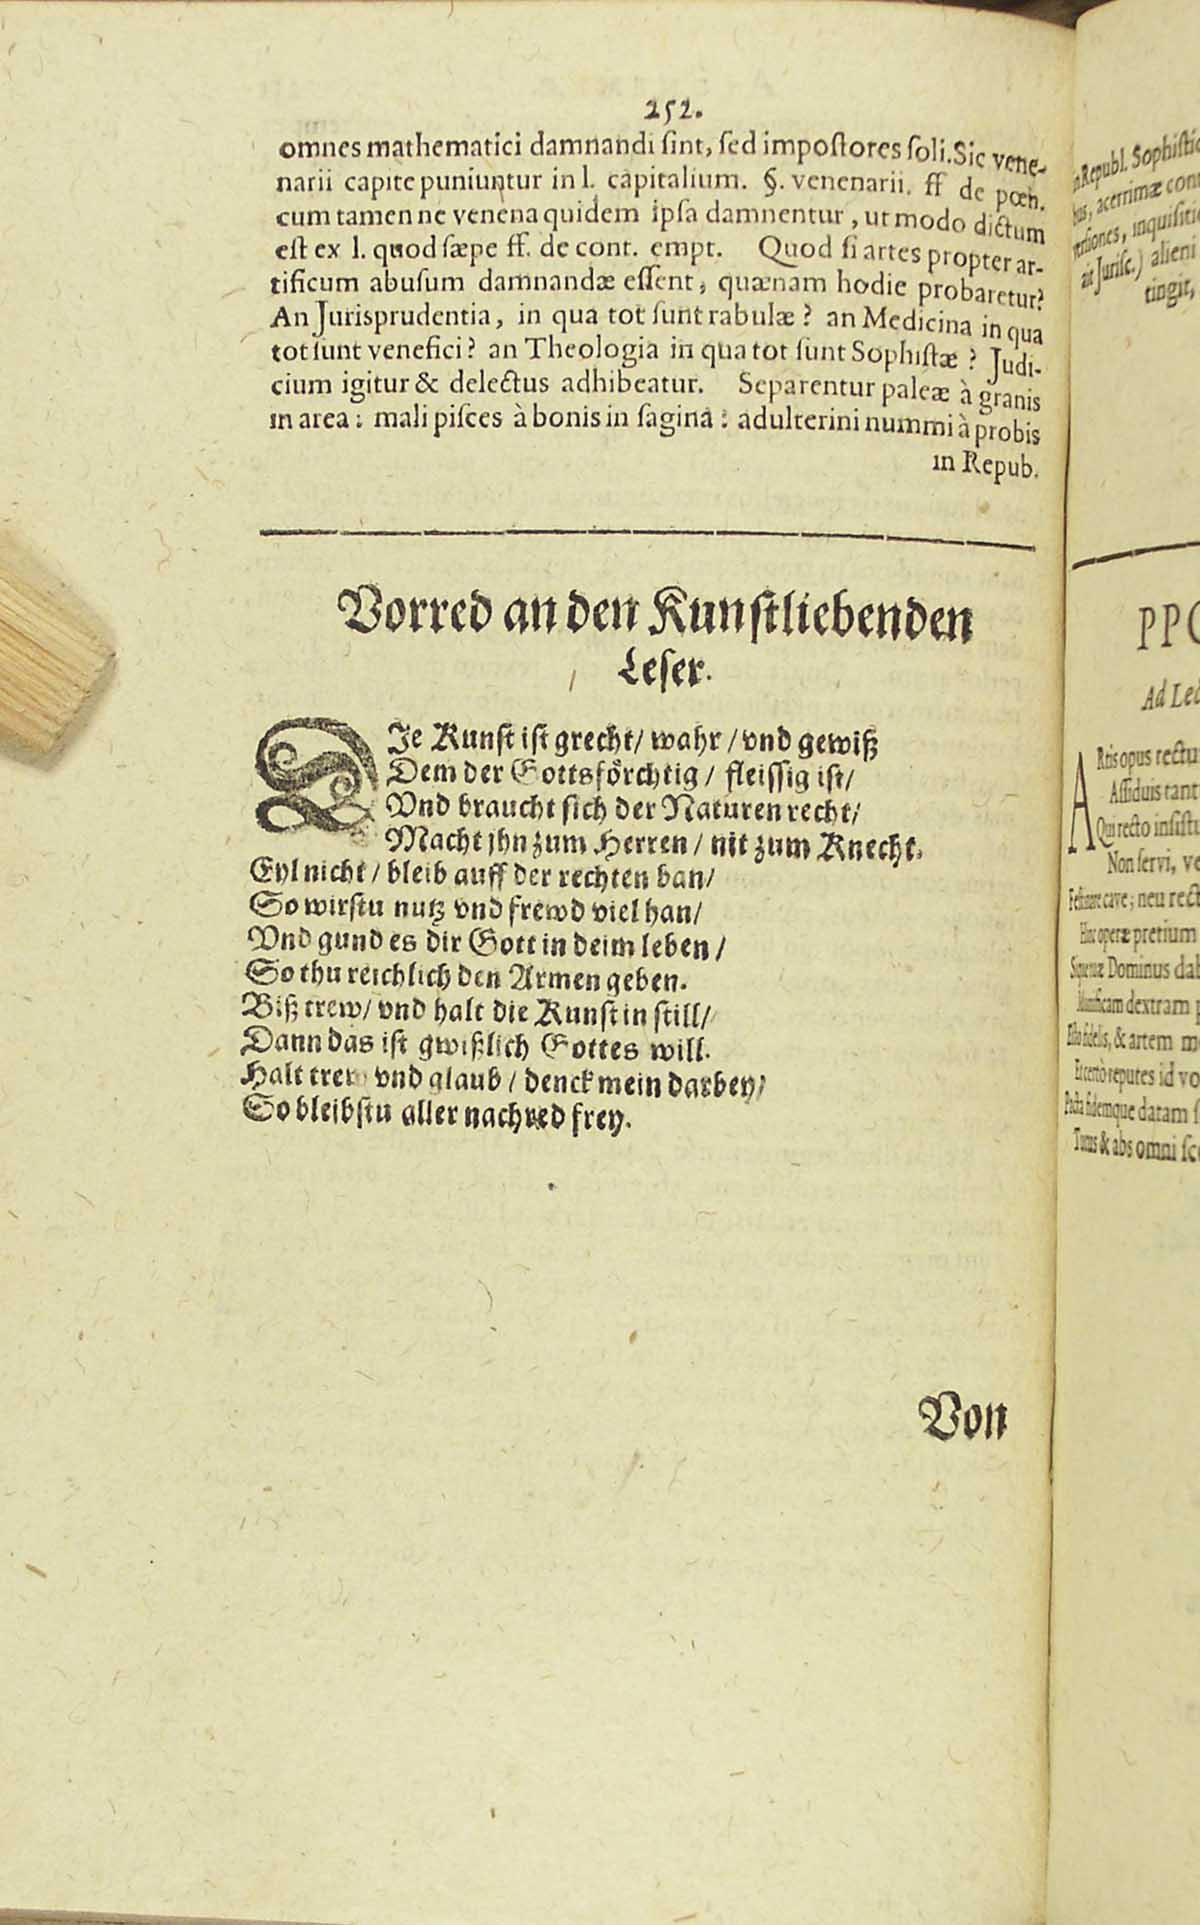 252.
omnes mathematici damnandi sint, sed impostores soli. Sic vene-
narii capite puniuntur in l. capitalium. §. venenarii. ff de pœn.
cum tamen ne venena quidem ipsa damnentur, ut modo dictum
est ex l. quod sæpe ff. de cont. empt. Quod si artes propter ar-
tificum abusum damnandæ essent, quænam hodie probaretur?
An Jurisprudentia, in qua tot sunt rabulæ? an Medicina in qua
tot sunt venefici? an Theologia in qua tot sunt Sophistæ? Judi-
cium igitur & delectus adhibeatur. Separentur paleæ à granis
in area: mali pisces à bonis in sagina: adulterini nummi à probis
in Repub.
Vorred an den Kunstliebenden
Leser.
DIe Kunst ist grecht/ wahr/ vnd gewiß
Dem der Gottsförchtig/ fleissig ist/
Vnd braucht sich der Naturen recht/
Macht jhn zum Herren/ nit zum Knecht.
Eyl nicht/ bleib auff der rechten ban/
So wirstu nutz vnd frewd viel han/
Vnd gund es dir Gott in deim leben/
So thu reichlich den Armen geben.
Biß trew/ vnd halt die Kunst in still/
Dann das ist gwißlich Gottes will.
Halt trew vnd glaub/ denck mein darbey/
So bleibstu aller nachred frey.
Von
in Republ. Sophistic
bus, acerrimæ con
versiones, inquisitio
ait Jurisc.) alieni
tingit,
PPO
Ad Lec
ARtis opus rectu
Assiduis tant
Qui recto insistu
Non servi, ve
Festinare cave; neu rect
Hinc operæ pretium
Sique tuæ Dominus dab
Munificam dextram p
Esto fidelis, & artem m
Et certò reputes id vo
Pacta fidemque datam s
Tutus & abs omni sce